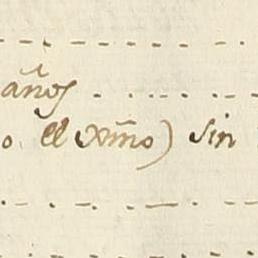 años
o el xmo) sin